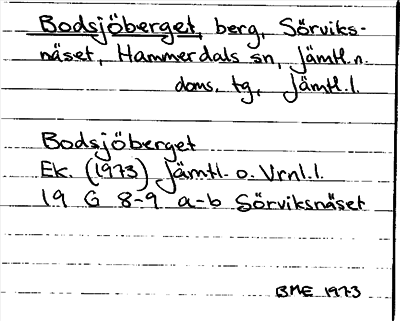 Bodsjöberget, berg, Sörviks-
näset, Hammerdals sn, Jämtl.n.
doms. tg, Jämtl.l.
Bodsjöberget
Ek. (1973) Jämtl. o. Vrnl.l.
19 G 8-9 a-b Sörviksnäset
BME 1973